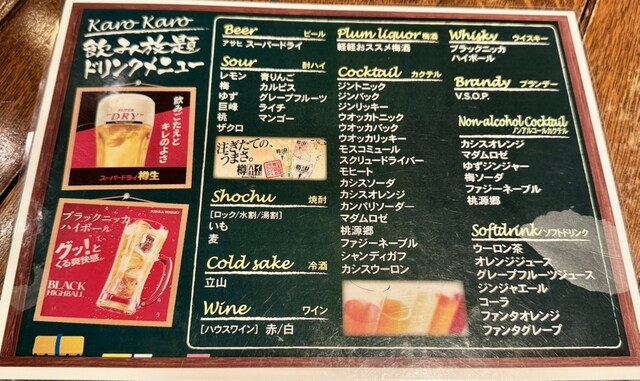 Karo Karo
飲み放題
ドリンクメニュー
SUPER
"DRY"
飲みごたえと
キレのよさ
スーパードライ 樽生
ブラックニッカ
ハイボール
グッ!と
くる爽快感
BLACK
HIGHBALL
Beer ビール
アサヒ スーパードライ
Sour 酎ハイ
レモン 青りんご
梅 カルピス
ゆず グレープフルーツ
巨峰 ライチ
桃 マンゴー
ザクロ
注ぎたての、
うまさ。
Shochu 焼酎
[ロック/水割/湯割]
いも
麦
Cold sake 冷酒
立山
Wine ワイン
[ハウスワイン] 赤/白
Plum liquor 梅酒
軽軽おススメ梅酒
Cocktail カクテル
ジントニック
ジンバック
ジンリッキー
ウオッカトニック
ウオッカバック
ウオッカリッキー
モスコミュール
スクリュードライバー
モヒート
カシスソーダ
カシスオレンジ
カンパリソーダー
マダムロゼ
桃源郷
ファジーネーブル
シャンディガフ
カシスウーロン
Whisky ウイスキー
ブラックニッカ
ハイボール
Brandy ブランデー
V.S.O.P.
Non-alcohol Cocktail
ノンアルコールカクテル
カシスオレンジ
マダムロゼ
ゆずジンジャー
梅ソーダ
ファジーネーブル
桃源郷
Softdrink ソフトドリンク
ウーロン茶
オレンジジュース
グレープフルーツジュース
ジンジャエール
コーラ
ファンタオレンジ
ファンタグレープ